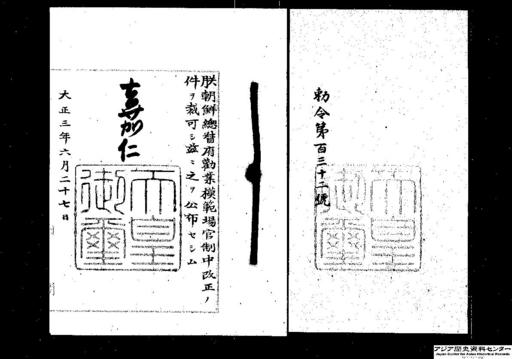 勅令第百三十二號
朕朝鮮總督府勸業模範場官制中改正ノ
件ヲ裁可シ茲ニ之ヲ公布セシム
嘉仁
大正三年六月二十七日
天皇
御璽
アジア歴史資料センター
Japan Center for Asian Historical Records